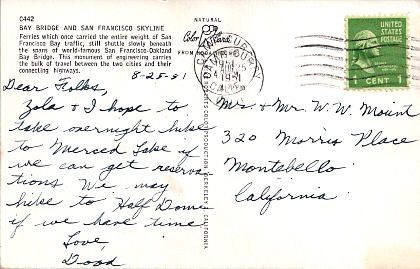 C442
BAY BRIDGE AND SAN FRANCISCO SKYLINE
Ferries which once carried the entire weight of San
Francisco Bay traffic, still shuttle slowly beneath the
spans of world-famous San Francisco-Oakland
Bay Bridge. This monument of engineering carries
the bulk of travel between the two cities and their
connecting highways.
8-25-51
Dear Folks,
Zola & I hope to
take overnight hike
to Merced Lake if
we can get reserva
tions We may
hike to Half Dome
if we have time
Love,
Dood
NATURAL
Color
CAMP CURRY
CALIF.
UNITED STATES
POSTAGE
1 CENT 1
Mr. & Mrs. W. W. Mount
320 Morris Place
Montebello
California